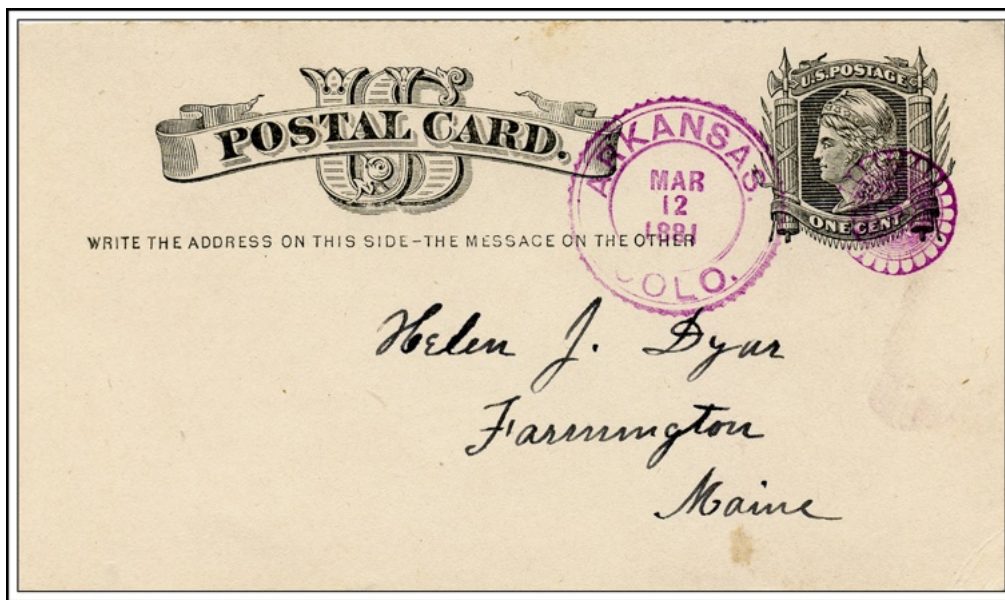 US
POSTAL CARD.
U.S. POSTAGE
ONE CENT
ARKANSAS.
MAR
12
1881
COLO.
WRITE THE ADDRESS ON THIS SIDE-THE MESSAGE ON THE OTHER
Helen J. Dyar
Farmington
Maine